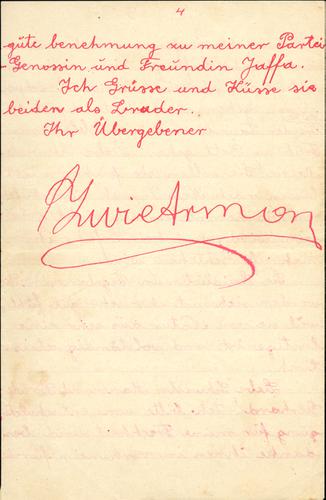 4
güte benehmung zu meiner Partei
-Genossin und Freundin Jaffa.
Ich Grüsse und Küsse sie
beiden als Bruder.
Ihr Übergebener
Zwi Armon